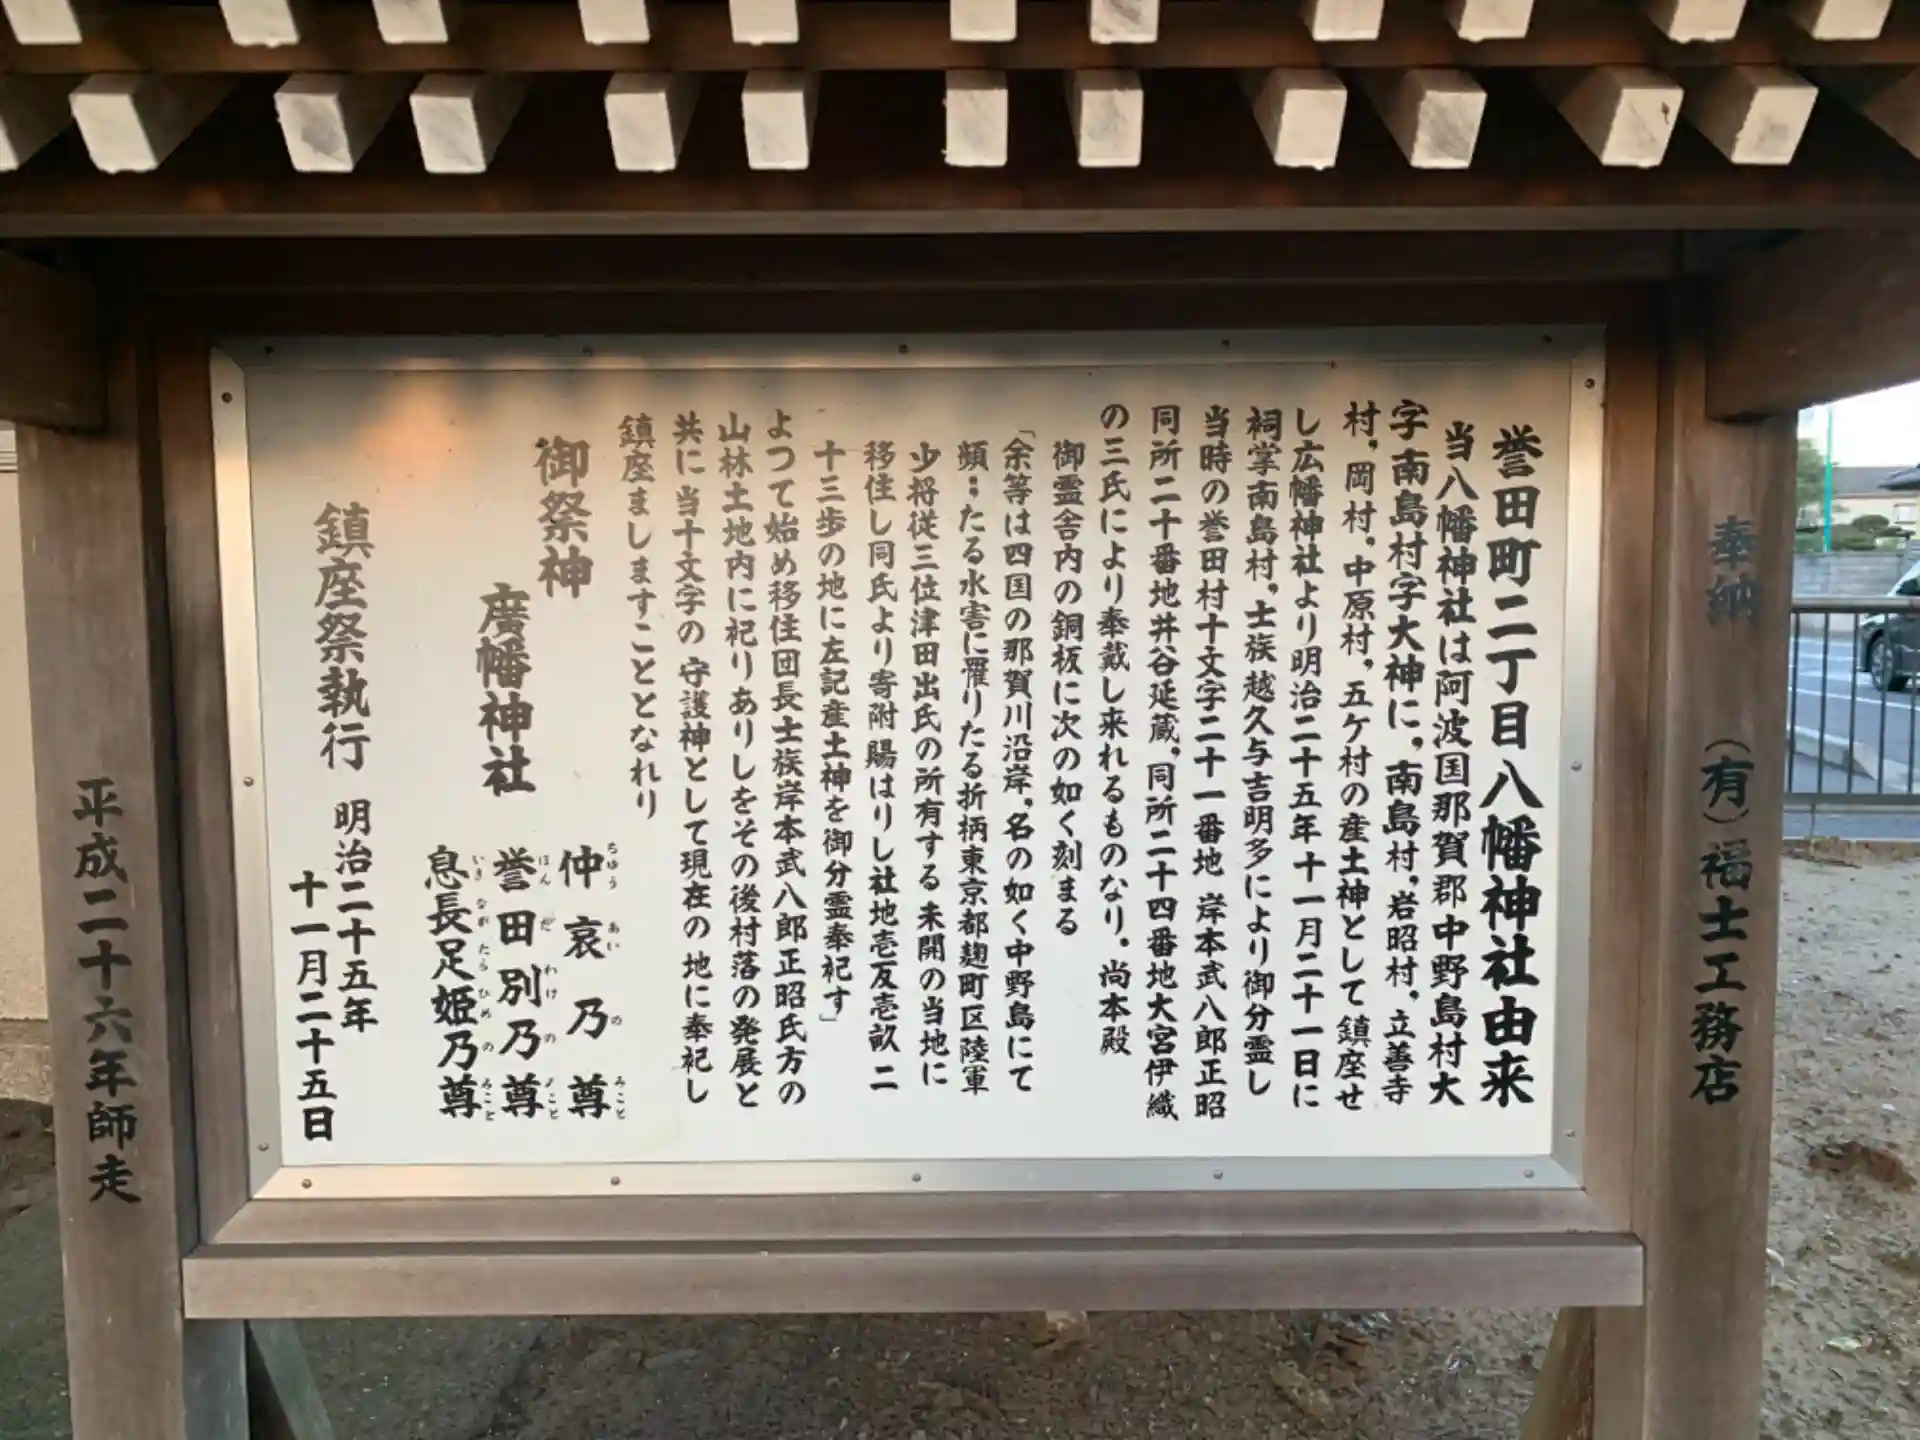 奉納 (有)福士工務店
誉田町二丁目八幡神社由来
当八幡神社は阿波国那賀郡中野島村大
字南島村字大神に，南島村，岩昭村，立善寺
村，岡村，中原村，五ケ村の産土神として鎮座せ
し広幡神社より明治二十五年十一月二十一日に
祠掌南島村，士族越久与吉明多により御分霊し
当時の誉田村十文字二十一番地 岸本武八郎正昭
同所二十番地井谷延蔵，同所二十四番地大宮伊織
の三氏により奉戴し来れるものなり．尚本殿
御霊舎内の銅板に次の如く刻まる
「余等は四国の那賀川沿岸，名の如く中野島にて
頻；たる水害に罹りたる折柄東京都麹町区陸軍
少将従三位津田出氏の所有する未開の当地に
移住し同氏より寄附賜はりし社地壱反壱畝二
十三歩の地に左記産土神を御分霊奉祀す」
よつて始め移住団長士族岸本武八郎正昭氏方の
山林土地内に祀りありしをその後村落の発展と
共に当十文字の守護神として現在の地に奉祀し
鎮座ましますこととなれり
御祭神
廣幡神社
仲哀乃尊
ちゅうあいのみこと
誉田別乃尊
ほんだわけのみこと
息長足姫乃尊
いきながたらひめのみこと
鎮座祭執行 明治二十五年
十一月二十五日
平成二十六年師走